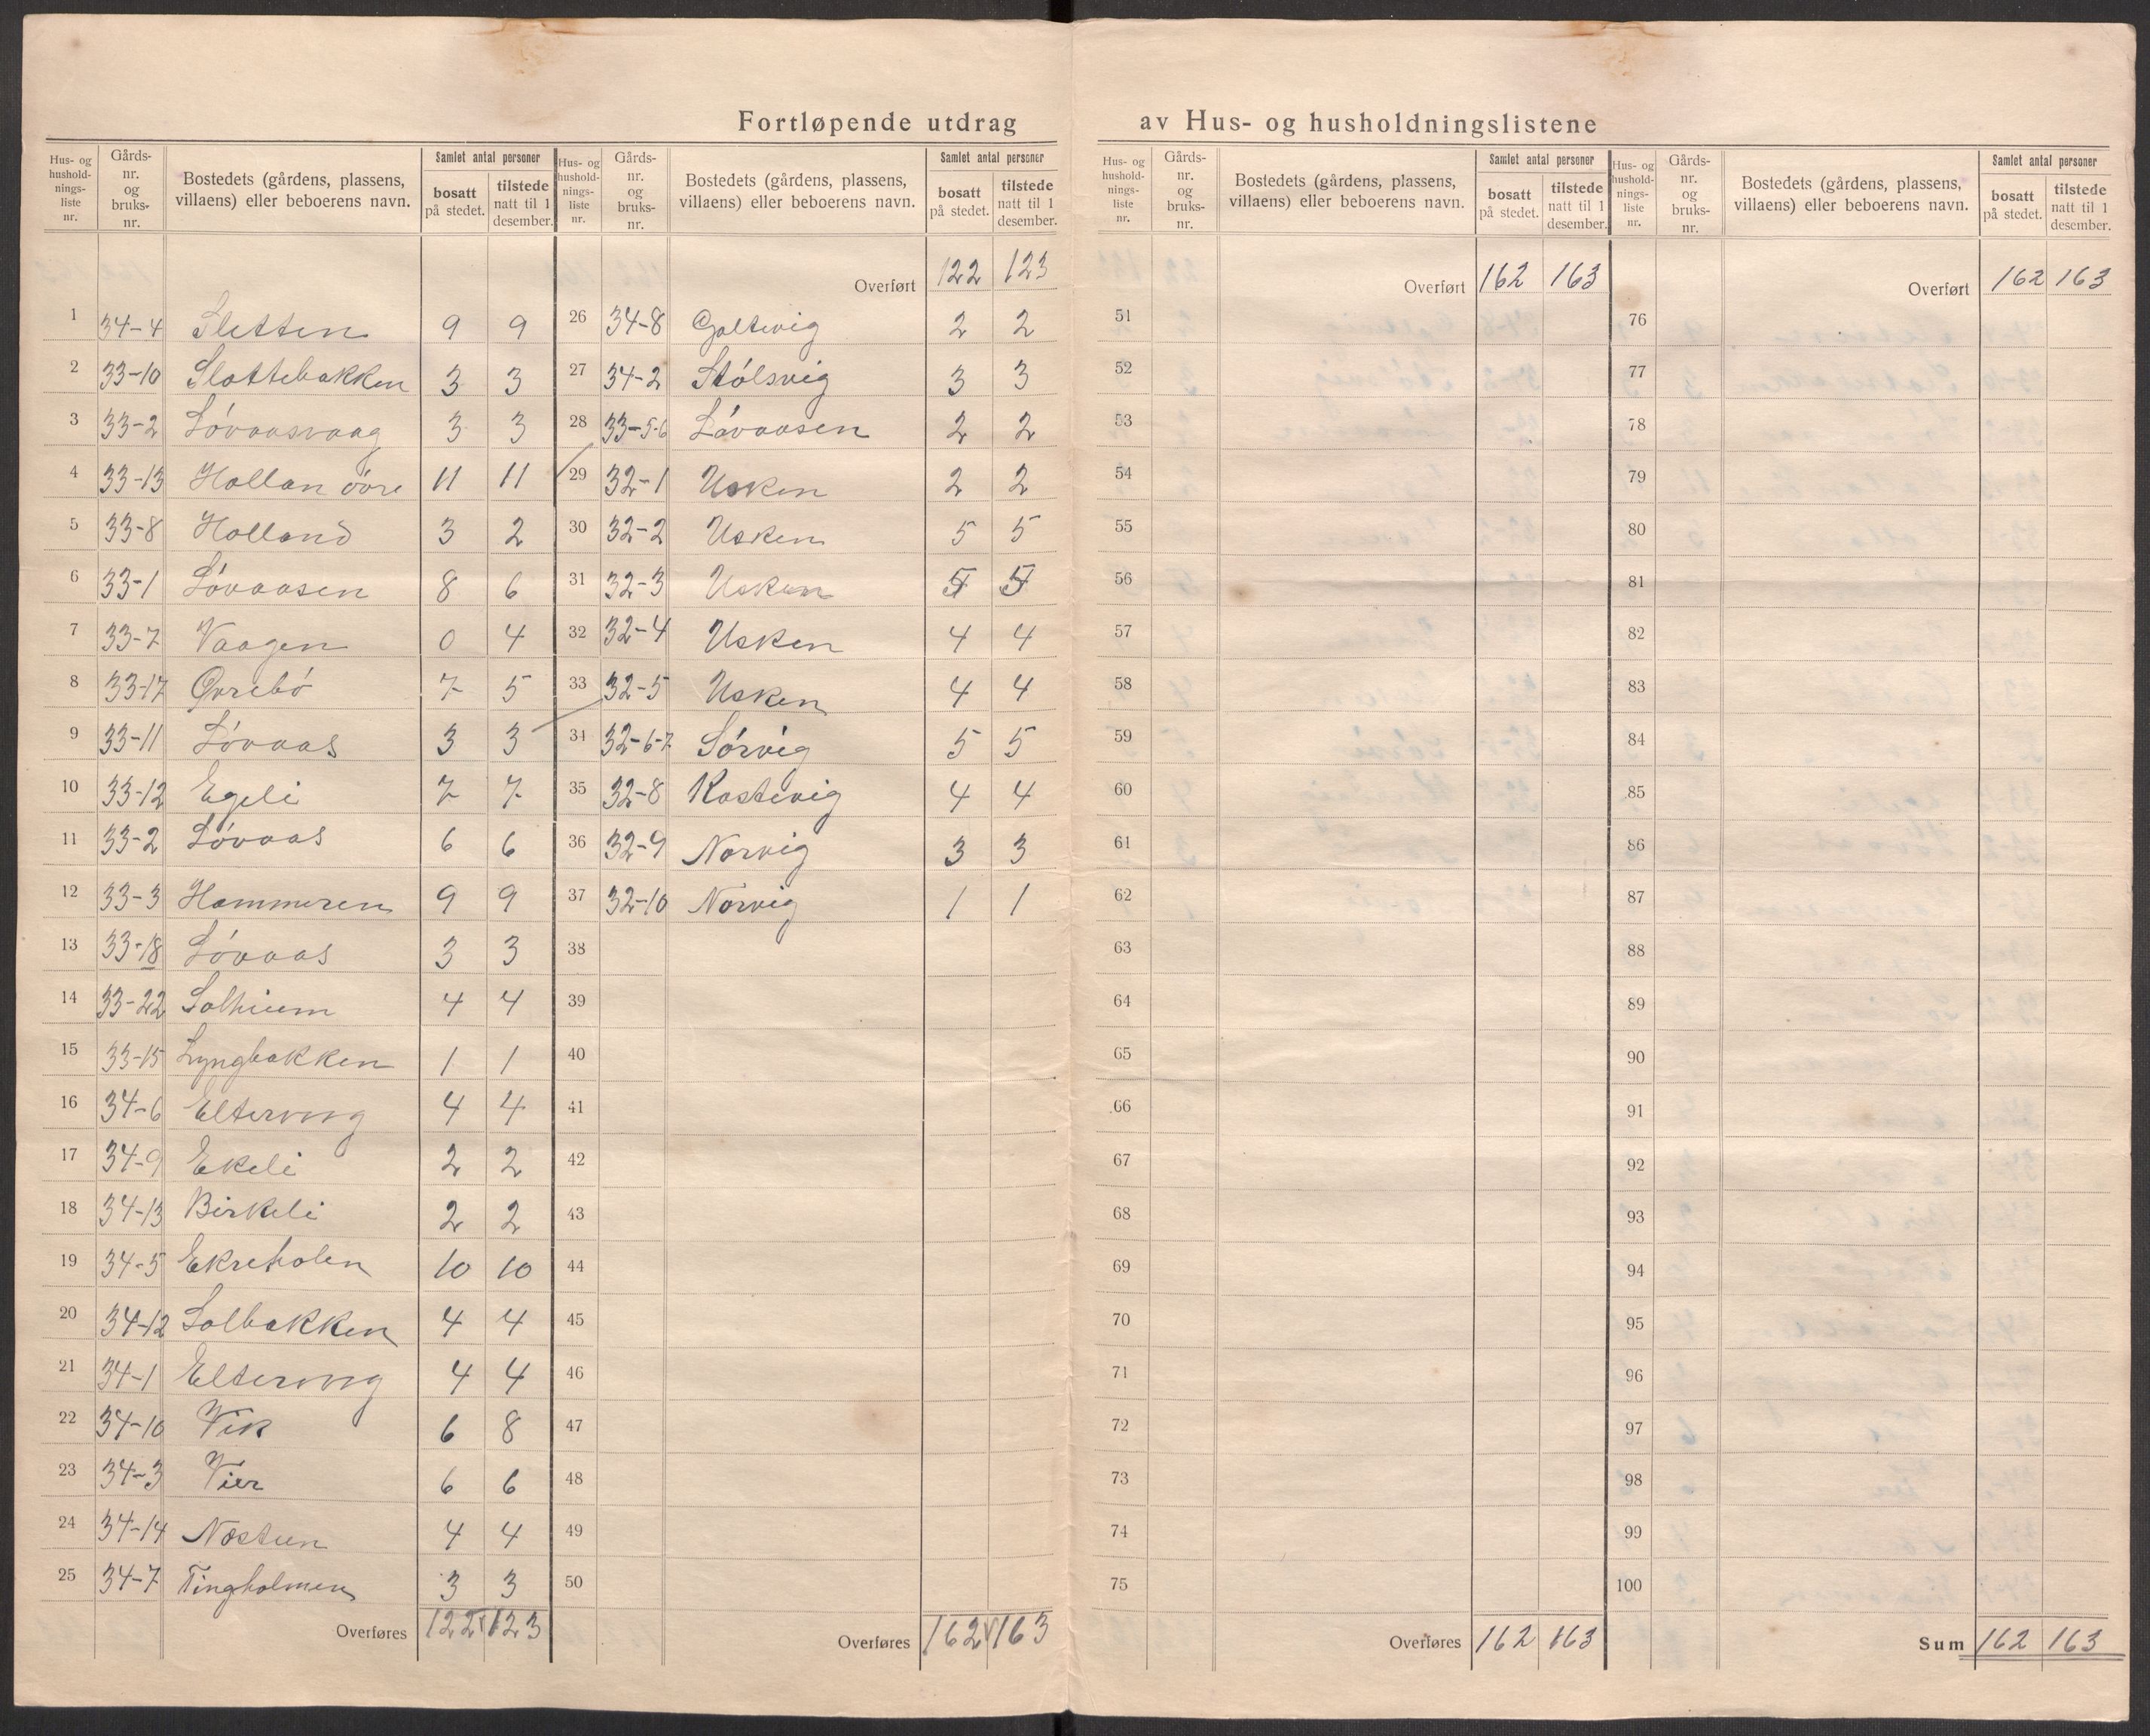 Fortløpende utdrag av Hus- og husholdningslistene
Hus- og hushold-nings-liste nr. | Gårds-nr. og bruks-nr. | Bostedets (gårdens, plassens, villaens) eller beboerens navn. | Samlet antal personer | bosatt på stedet. | tilstede natt til 1 desember.
1 34-4 Sletten 9 9
2 33-10 Slottebakken 3 3
3 33-2 Lóvaasvaag 3 3
4 33-13 Hollan óvre 11 11
5 33-8 Holland 3 2
6 33-1 Lóvaasen 8 6
7 33-7 Vaagen 0 4
8 33-17 Øvrebó 7 5
9 33-11 Lóvaas 3 3
10 33-12 Egeli 7 7
11 33-2 Lóvaas 6 6
12 33-3 Hammeren 9 9
13 33-18 Lóvaas 3 3
14 33-22 Solhium 4 4
15 33-15 Lyngbakken 1 1
16 34-6 Eltervug 4 4
17 34-9 Ekeli 2 2
18 34-13 Birkeli 2 2
19 34-5 Ekreholen 10 10
20 34-12 Solbakken 4 4
21 34-1 Eltervug 4 4
22 34-10 Vik 6 8
23 34-3 Vier 6 6
24 34-14 Nostun 4 4
25 34-7 Tingholmen 3 3
Overføres 122 123
Hus- og hushold-nings-liste nr. | Gårds-nr. og bruks-nr. | Bostedets (gårdens, plassens, villaens) eller beboerens navn. | Samlet antal personer | bosatt på stedet. | tilstede natt til 1 desember.
Overført 122 123
26 34-8 Galtevig 2 2
27 34-2 Stólsvig 3 3
28 33-5-6 Lóvaasen 2 2
29 32-1 Usken 2 2
30 32-2 Usken 5 5
31 32-3 Usken 5 5
32 32-4 Usken 4 4
33 32-5 Usken 4 4
34 32-6-7 Sórvig 5 5
35 32-8 Rostevig 4 4
36 32-9 Norvig 3 3
37 32-10 Norvig 1 1
38
39
40
41
42
43
44
45
46
47
48
49
50
Overføres 162 163
Hus- og hushold-nings-liste nr. | Gårds-nr. og bruks-nr. | Bostedets (gårdens, plassens, villaens) eller beboerens navn. | Samlet antal personer | bosatt på stedet. | tilstede natt til 1 desember.
Overført 162 163
51
52
53
54
55
56
57
58
59
60
61
62
63
64
65
66
67
68
69
70
71
72
73
74
75
Overføres 162 163
Hus- og hushold-nings-liste nr. | Gårds-nr. og bruks-nr. | Bostedets (gårdens, plassens, villaens) eller beboerens navn. | Samlet antal personer | bosatt på stedet. | tilstede natt til 1 desember.
Overført 162 163
76
77
78
79
80
81
82
83
84
85
86
87
88
89
90
91
92
93
94
95
96
97
98
99
100
Sum 162 163